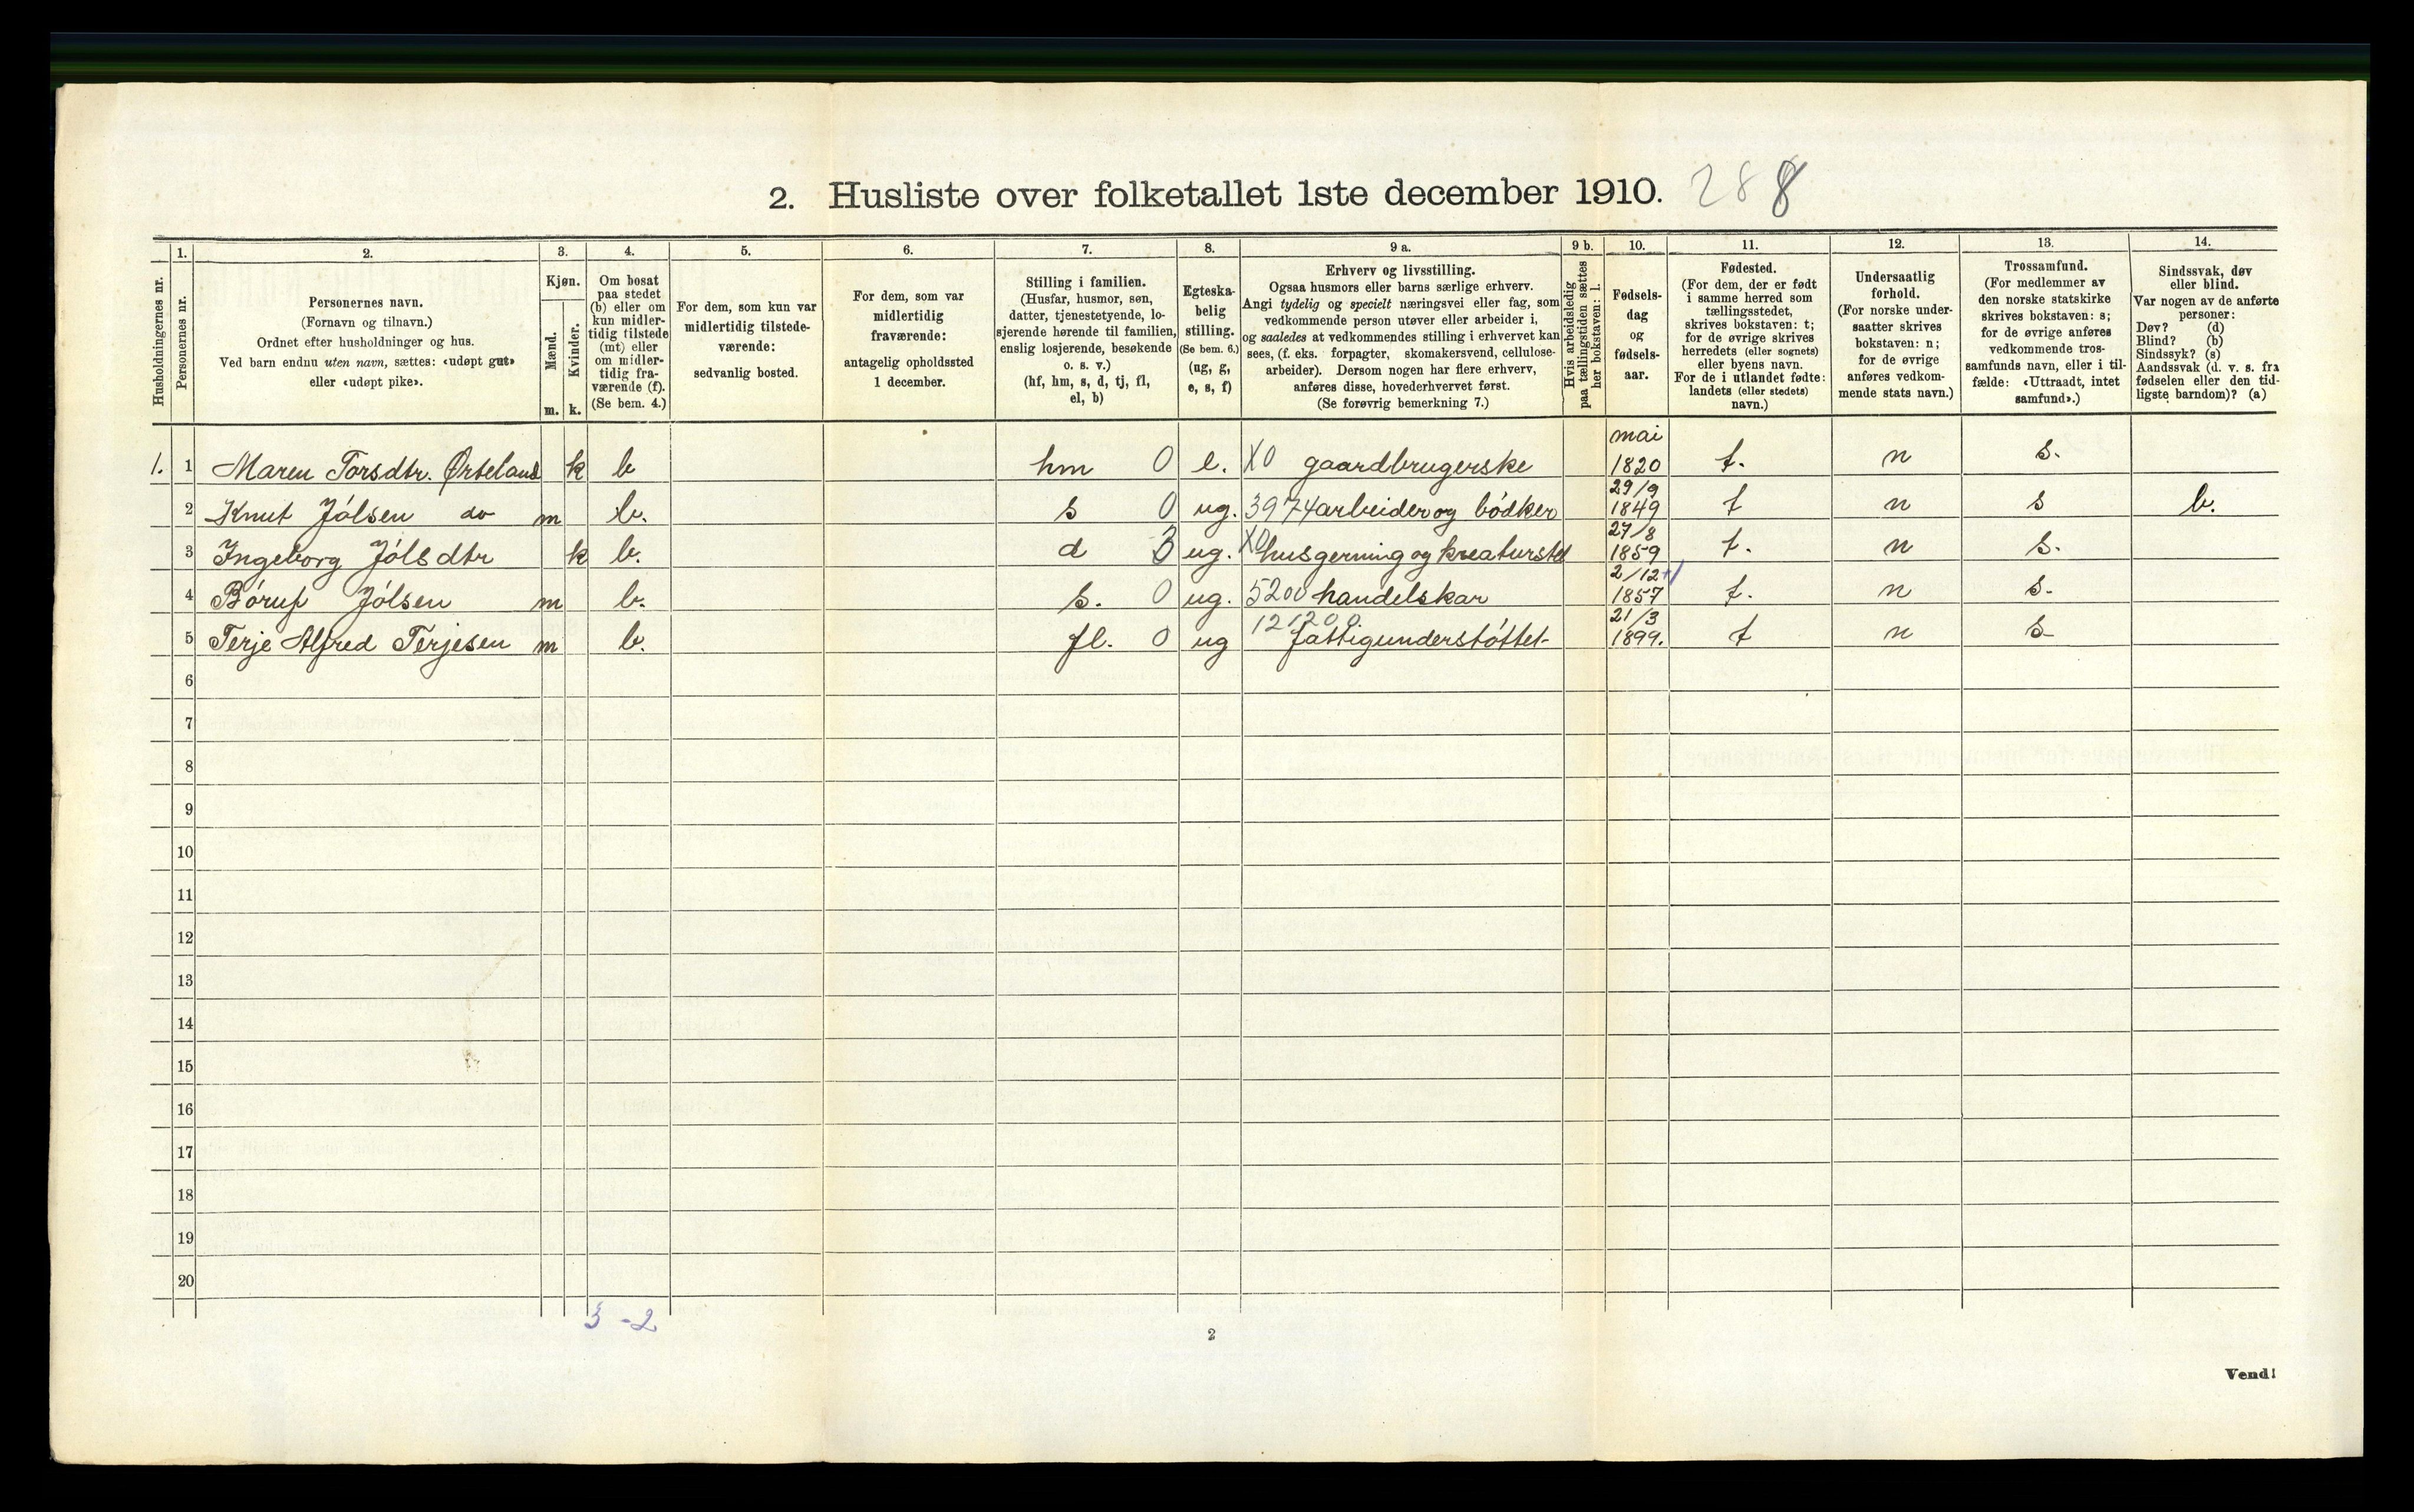 2. Husliste over folketallet 1ste december 1910. 288
Husholdningernes nr.
1.
Personernes nr.
2.
Personernes navn.
(Fornavn og tilnavn.)
Ordnet efter husholdninger og hus.
Ved barn endnu uten navn, sættes: «udøpt gut»
eller «udøpt pike».
3.
Kjøn.
Mænd.
Kvinder.
m. k.
4.
Om bosat
paa stedet
(b) eller om
kun midler-
tidig tilstede
(mt) eller
om midler-
tidig fra-
værende (f).
(Se bem. 4.)
5.
For dem, som kun var
midlertidig tilstede-
værende:
sedvanlig bosted.
6.
For dem, som var
midlertidig
fraværende:
antagelig opholdssted
1 december.
7.
Stilling i familien.
(Husfar, husmor, søn,
datter, tjenestetyende, lo-
sjerende hørende til familien,
enslig losjerende, besøkende
o. s. v.)
(hf, hm, s, d, tj, fl,
el, b)
8.
Egteska-
belig
stilling.
(Se bem. 6.)
(ug, g,
e, s, f)
9 a.
Erhverv og livsstilling.
Ogsaa husmors eller barns særlige erhverv.
Angi tydelig og specielt næringsvei eller fag, som
vedkommende person utøver eller arbeider i,
og saaledes at vedkommendes stilling i erhvervet kan
sees, (f. eks. forpagter, skomakersvend, cellulose-
arbeider). Dersom nogen har flere erhverv,
anføres disse, hovederhvervet først.
(Se forøvrig bemerkning 7.)
9 b.
Hvis arbeidsledig
paa tællingstiden sættes
her bokstaven: l.
10.
Fødsels-
dag
og
fødsels-
aar.
11.
Fødested.
(For dem, der er født
i samme herred som
tællingsstedet,
skrives bokstaven: t;
for de øvrige skrives
herredets (eller sognets)
eller byens navn.
For de i utlandet fødte:
landets (eller stedets)
navn.)
12.
Undersaatlig
forhold.
(For norske under-
saatter skrives
bokstaven: n;
for de øvrige
anføres vedkom-
mende stats navn.)
13.
Trossamfund.
(For medlemmer av
den norske statskirke
skrives bokstaven: s;
for de øvrige anføres
vedkommende tros-
samfunds navn, eller i til-
fælde: «Uttraadt, intet
samfund».)
14.
Sindssvak, døv
eller blind.
Var nogen av de anførte
personer:
Døv? (d)
Blind? (b)
Sindssyk? (s)
Aandssvak (d. v. s. fra
fødselen eller den tid-
ligste barndom)? (a)
mai
1. 1 Maren Torsdtr. Ørteland k b hm 0 e. X0 gaardbrugerske 1820 t. n s.
29/9
2 Knut Jólsen do m b. s 0 ug. 3974 arbeider og bódker 1849 t n s b.
27/8
3 Ingeborg Jólsdtr k b. d 3 ug. X0 husgerning og kreaturstel 1859 t. n s.
2/12
4 Börup Jólsen m b. s. 0 ug. 5200 handelskar 1857 t. n s.
121200. 21/3
5 Terje Alfred Terjesen m b. fl. 0 ug fattigunderstóttet 1899. t n s
6
7
8
9
10
11
12
13
14
15
16
17
18
19
20
3 - 2
2
Vend!